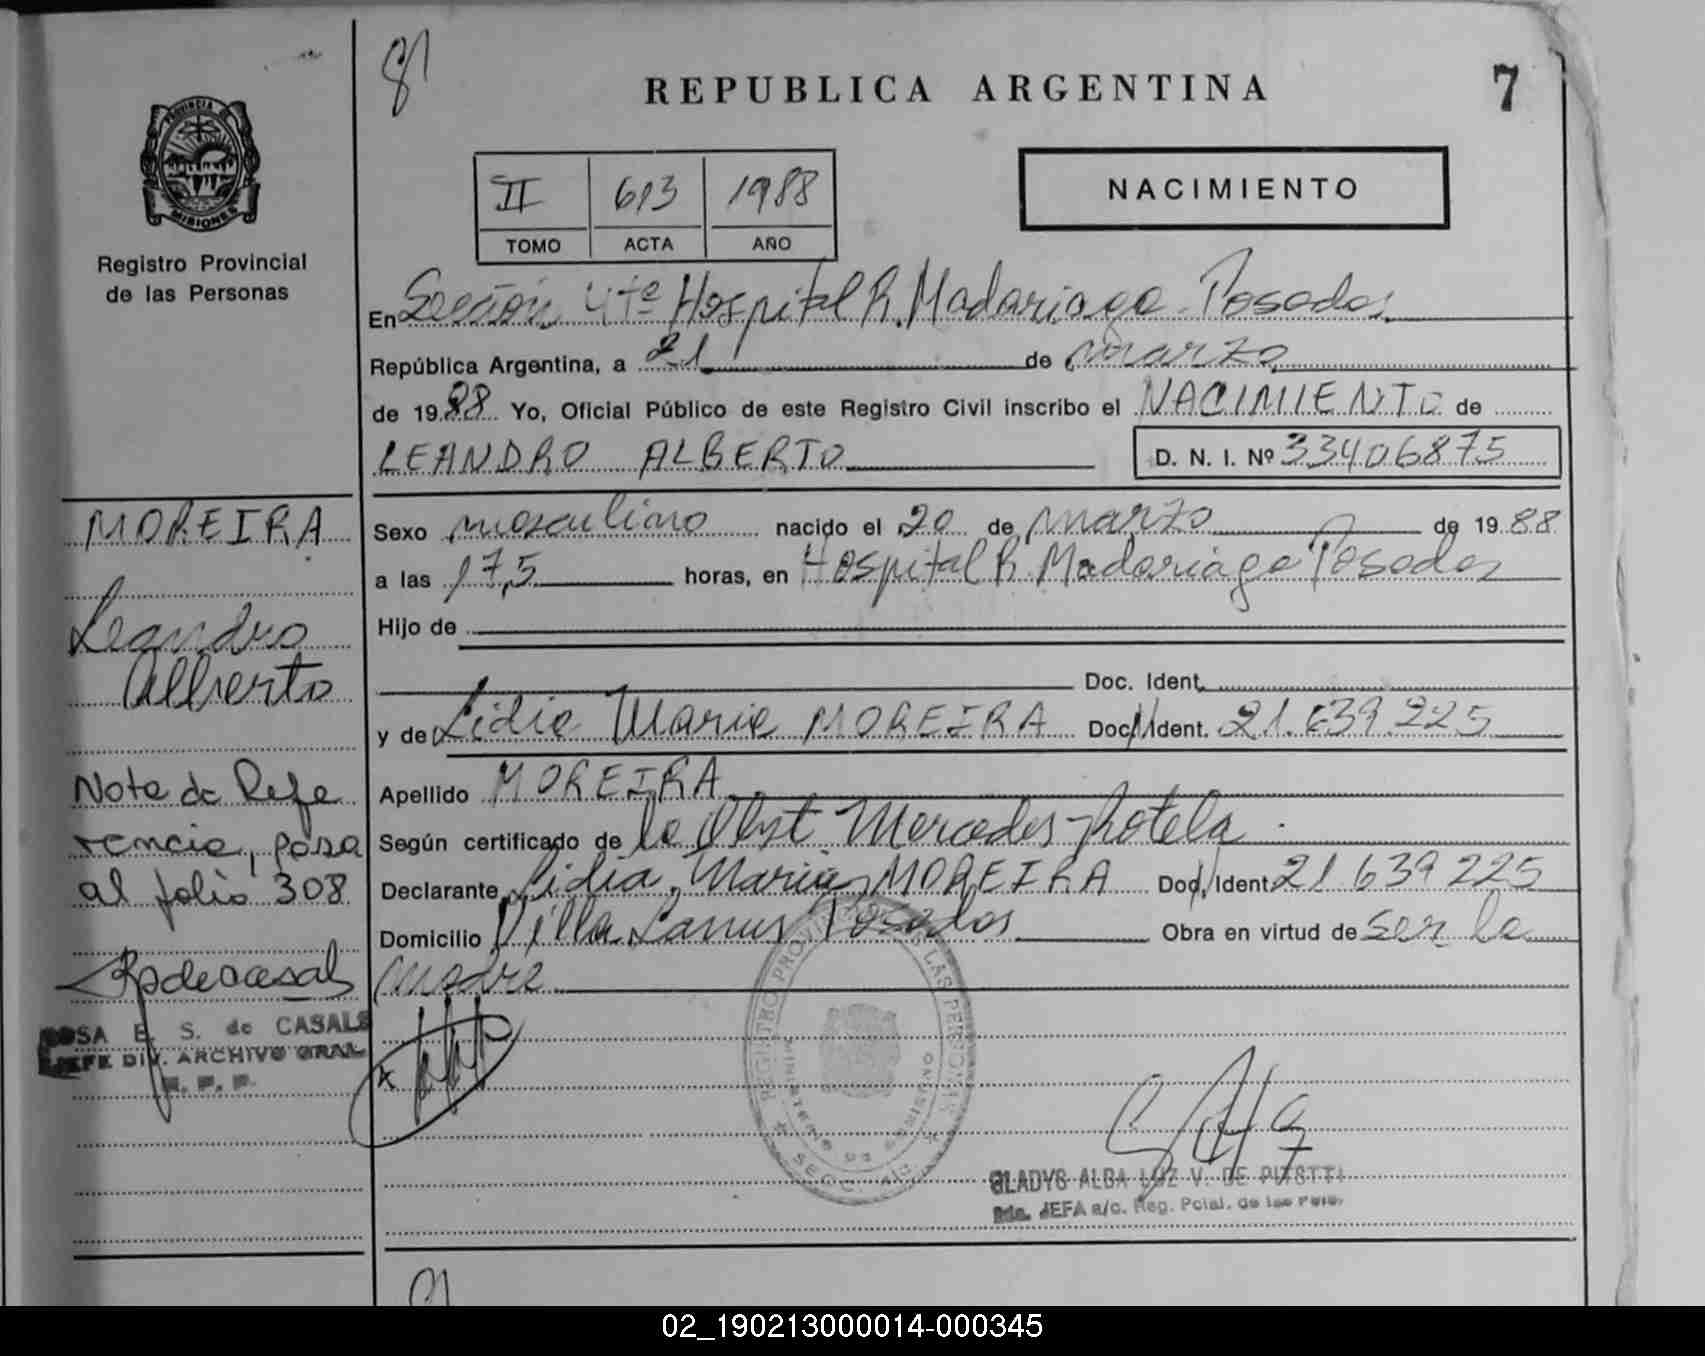 8
REPUBLICA ARGENTINA
7
PROVINCIA DE
MISIONES
Registro Provincial
de las Personas
II 613 1988
TOMO ACTA AÑO
NACIMIENTO
En Sección 4ta Hospital R. Madariaga Posadas
República Argentina, a 21 de marzo
de 1988 Yo, Oficial Público de este Registro Civil inscribo el NACIMIENTO de
LEANDRO ALBERTO D. N. I. Nº 33406875
MOREIRA
Leandro
Alberto
Sexo masculino nacido el 20 de marzo de 1988
a las 17,5 horas, en Hospital R. Madariaga Posadas
Hijo de
Doc. Ident.
y de Lidia Maria MOREIRA Doc. Ident. 21.639.225
Apellido MOREIRA
Según certificado de la Obst Mercedes Rotela
Declarante Lidia Maria MOREIRA Doc. Ident. 21.639 225
Domicilio Villa Lanus Posadas Obra en virtud de ser la
madre
Nota de Refe
rencia, pasa
al folio 308
ROSA E. S. de CASALS
JEFE DIV. ARCHIVO GRAL.
REGISTRO PROVINCIAL DE LAS PERSONAS
MINISTERIO DE GOBIERNO
GLADYS ALBA LUZ V. DE
JEFA a/c. Reg. Pcial. de las Pers.
02_190213000014-000345